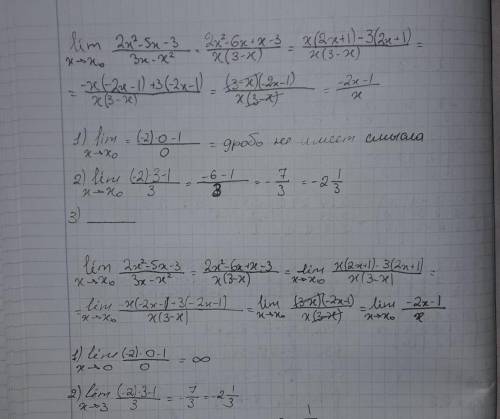 lim x→x₀ (2x²-5x-3)/(3x-x²) = (2x²-6x+x-3)/(x(3-x)) = (x(2x+1)-3(2x+1))/(x(3-x)) =
= (-x(-2x-1)+3(-2x-1))/(x(3-x)) = ((3-x)(-2x-1))/(x(3-x)) = (-2x-1)/x
1) lim x→x₀ = ((-2)·0-1)/0 = дробь не имеет смысла
2) lim x→x₀ ((-2)·3-1)/3 = (-6-1)/3 = -7/3 = -2 1/3
3) ____
lim x→x₀ (2x²-5x-3)/(3x-x²) = (2x²-6x+x-3)/(x(3-x)) = lim x→x₀ (x(2x+1)-3(2x+1))/(x(3-x) =
= lim x→x₀ (-x(-2x-1)-3(-2x-1))/(x(3-x) = lim x→x₀ ((3-x)(-2x-1))/(x(3-x)) = lim x→x₀ (-2x-1)/x
1) lim x→0 ((-2)·0-1)/0 = ∞
2) lim x→3 ((-2)·3-1)/3 = -7/3 = -2 1/3